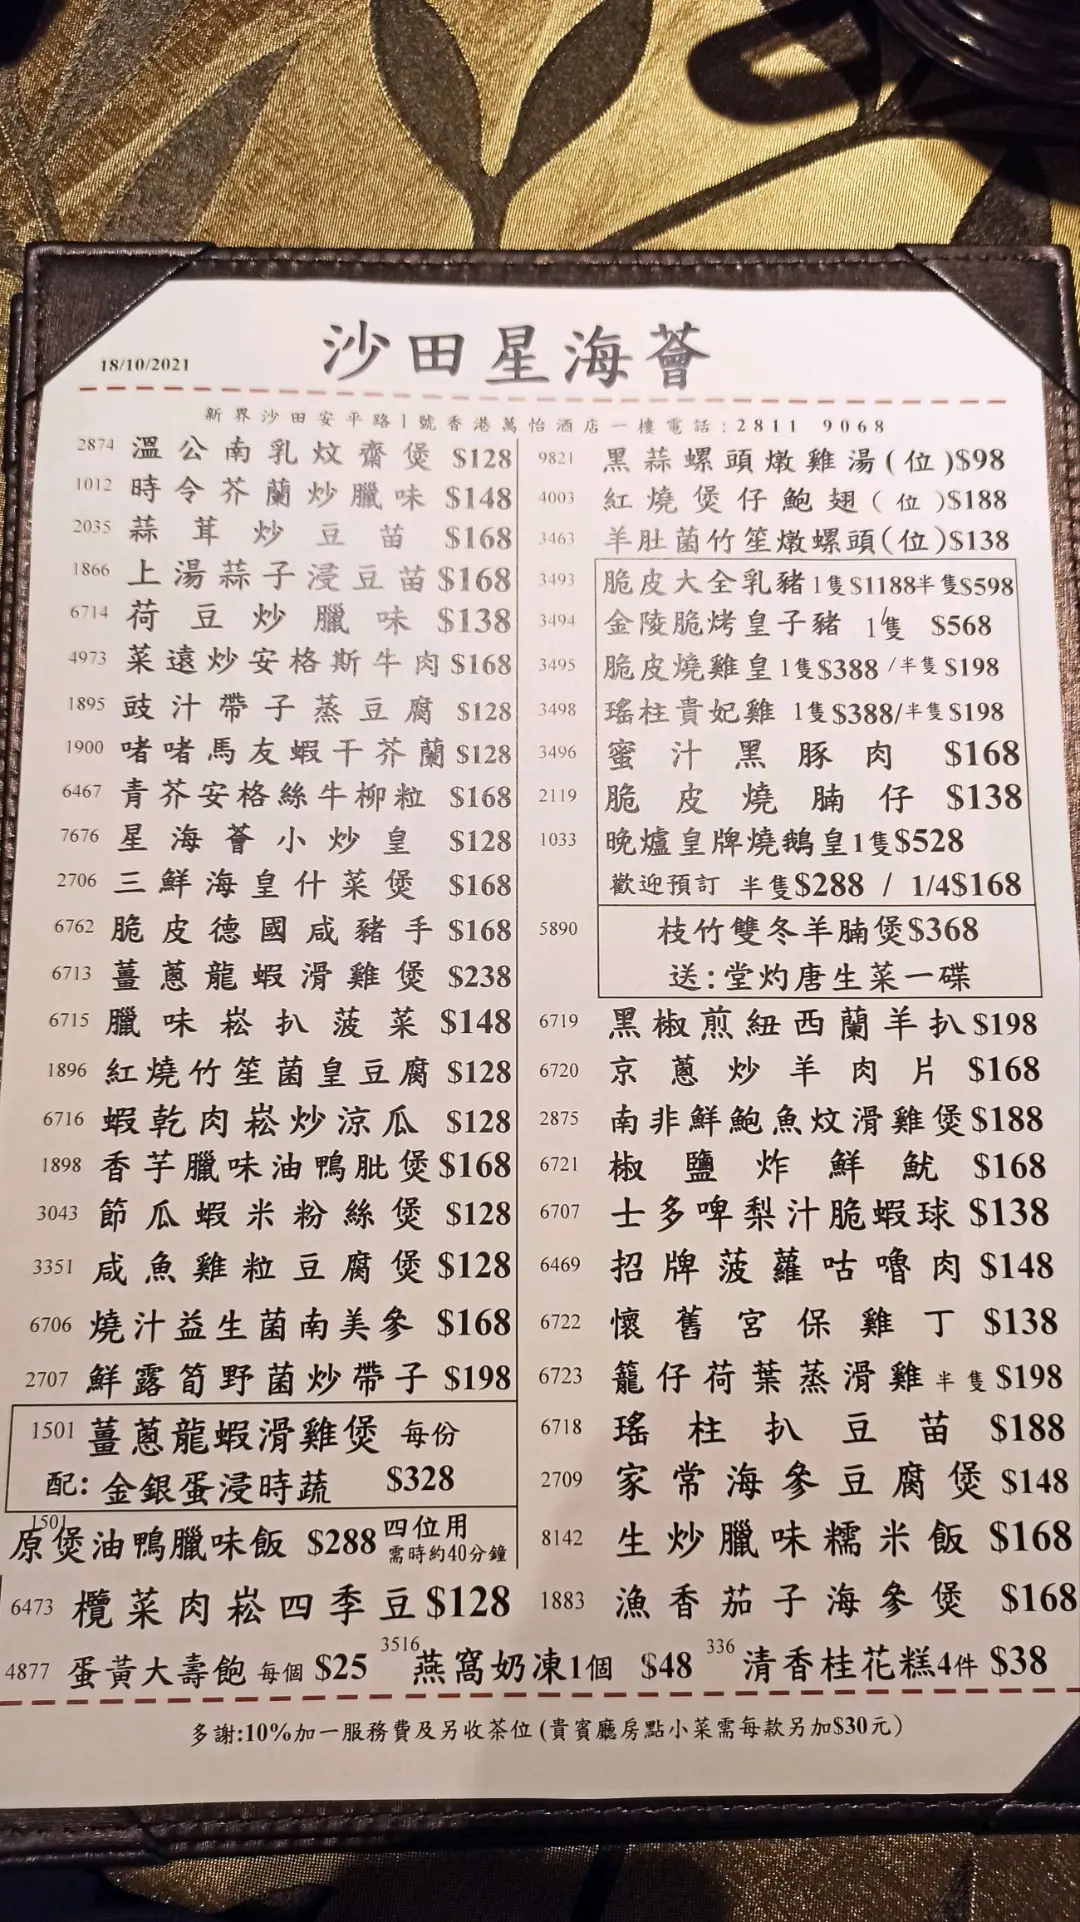 沙田星海薈
18/10/2021
新界沙田安平路1號香港萬怡酒店一樓電話:2811 9068
2874 溫公南乳炆齋煲 $128
1012 時令芥蘭炒臘味 $148
2035 蒜茸炒豆苗 $168
1866 上湯蒜子浸豆苗 $168
6714 荷豆炒臘味 $138
4973 菜遠炒安格斯牛肉 $168
1895 豉汁帶子蒸豆腐 $128
1900 啫啫馬友蝦干芥蘭 $128
6467 青芥安格絲牛柳粒 $168
7676 星海薈小炒皇 $128
2706 三鮮海皇什菜煲 $168
6762 脆皮德國咸豬手 $168
6713 薑蔥龍蝦滑雞煲 $238
6715 臘味崧扒菠菜 $148
1896 紅燒竹笙菌皇豆腐 $128
6716 蝦乾肉崧炒涼瓜 $128
1898 香芋臘味油鴨肶煲 $168
3043 節瓜蝦米粉絲煲 $128
3351 咸魚雞粒豆腐煲 $128
6706 燒汁益生菌南美參 $168
2707 鮮露筍野菌炒帶子 $198
1501 薑蔥龍蝦滑雞煲 每份
配: 金銀蛋浸時蔬 $328
1501
原煲油鴨臘味飯 $288 四位用
需時約40分鐘
6473 欖菜肉崧四季豆 $128
9821 黑蒜螺頭燉雞湯(位)$98
4003 紅燒煲仔鮑翅(位)$188
3463 羊肚菌竹笙燉螺頭(位)$138
3493 脆皮大全乳豬1隻$1188半隻$598
3494 金陵脆烤皇子豬 1隻 $568
3495 脆皮燒雞皇1隻$388/半隻$198
3498 瑤柱貴妃雞 1隻$388/半隻$198
3496 蜜汁黑豚肉 $168
2119 脆皮燒腩仔 $138
1033 晚爐皇牌燒鵝皇1隻$528
歡迎預訂 半隻$288 / 1/4$168
5890 枝竹雙冬羊腩煲$368
送:堂灼唐生菜一碟
6719 黑椒煎紐西蘭羊扒$198
6720 京蔥炒羊肉片 $168
2875 南非鮮鮑魚炆滑雞煲$188
6721 椒鹽炸鮮魷 $168
6707 士多啤梨汁脆蝦球 $138
6469 招牌菠蘿咕嚕肉 $148
6722 懷舊宮保雞丁 $138
6723 籠仔荷葉蒸滑雞 半隻 $198
6718 瑤柱扒豆苗 $188
2709 家常海參豆腐煲 $148
8142 生炒臘味糯米飯 $168
1883 漁香茄子海參煲 $168
4877 蛋黃大壽飽 每個 $25 3516 燕窩奶凍1個 $48 336 清香桂花糕4件 $38
多謝:10%加一服務費及另收茶位(貴賓廳房點小菜需每款另加$30元)